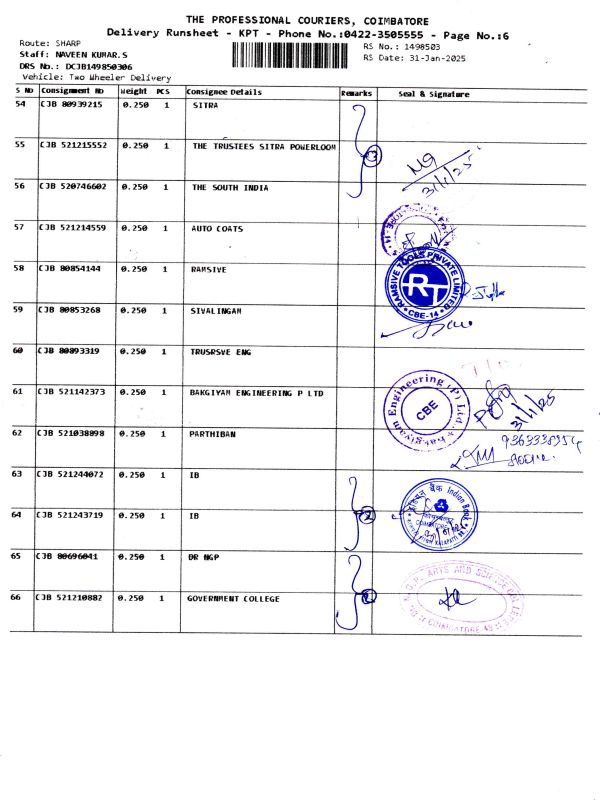 THE PROFESSIONAL COURIERS, COIMBATORE
Delivery Runsheet - KPT - Phone No.:0422-3505555 - Page No.:6
Route: SHARP
RS No.: 1498503
Staff: NAVEEN KUMAR.S
RS Date: 31-Jan-2025
DRS No.: DCJB149850306
Vehicle: Two Wheeler Delivery
S No Consignment No Weight PCS Consignee Details Remarks Seal & Signature
54 CJB 80939215 0.250 1 SITRA
55 CJB 521215552 0.250 1 THE TRUSTEES SITRA POWERLOOM 3
31/1/25
56 CJB 520746602 0.250 1 THE SOUTH INDIA
57 CJB 521214559 0.250 1 AUTO COATS
58 CJB 80854144 0.250 1 RAMSIVE
RAMSIVE TOOLS PRIVATE LIMITED
RT
CBE-14
59 CJB 80853268 0.250 1 SIVALINGAM
60 CJB 80893319 0.250 1 TRUSRSVE ENG
61 CJB 521142373 0.250 1 BAKGIYAM ENGINEERING P LTD
Bakgiyam Engineering (P) Ltd
CBE
31/1/25
62 CJB 521038898 0.250 1 PARTHIBAN
9363338354
63 CJB 521244072 0.250 1 IB
64 CJB 521243719 0.250 1 IB 2
इंडियन बैंक Indian Bank
65 CJB 80696041 0.250 1 DR NGP
66 CJB 521210882 0.250 1 GOVERNMENT COLLEGE
N.G.P. ARTS AND SCIENCE COLLEGE
COIMBATORE-48